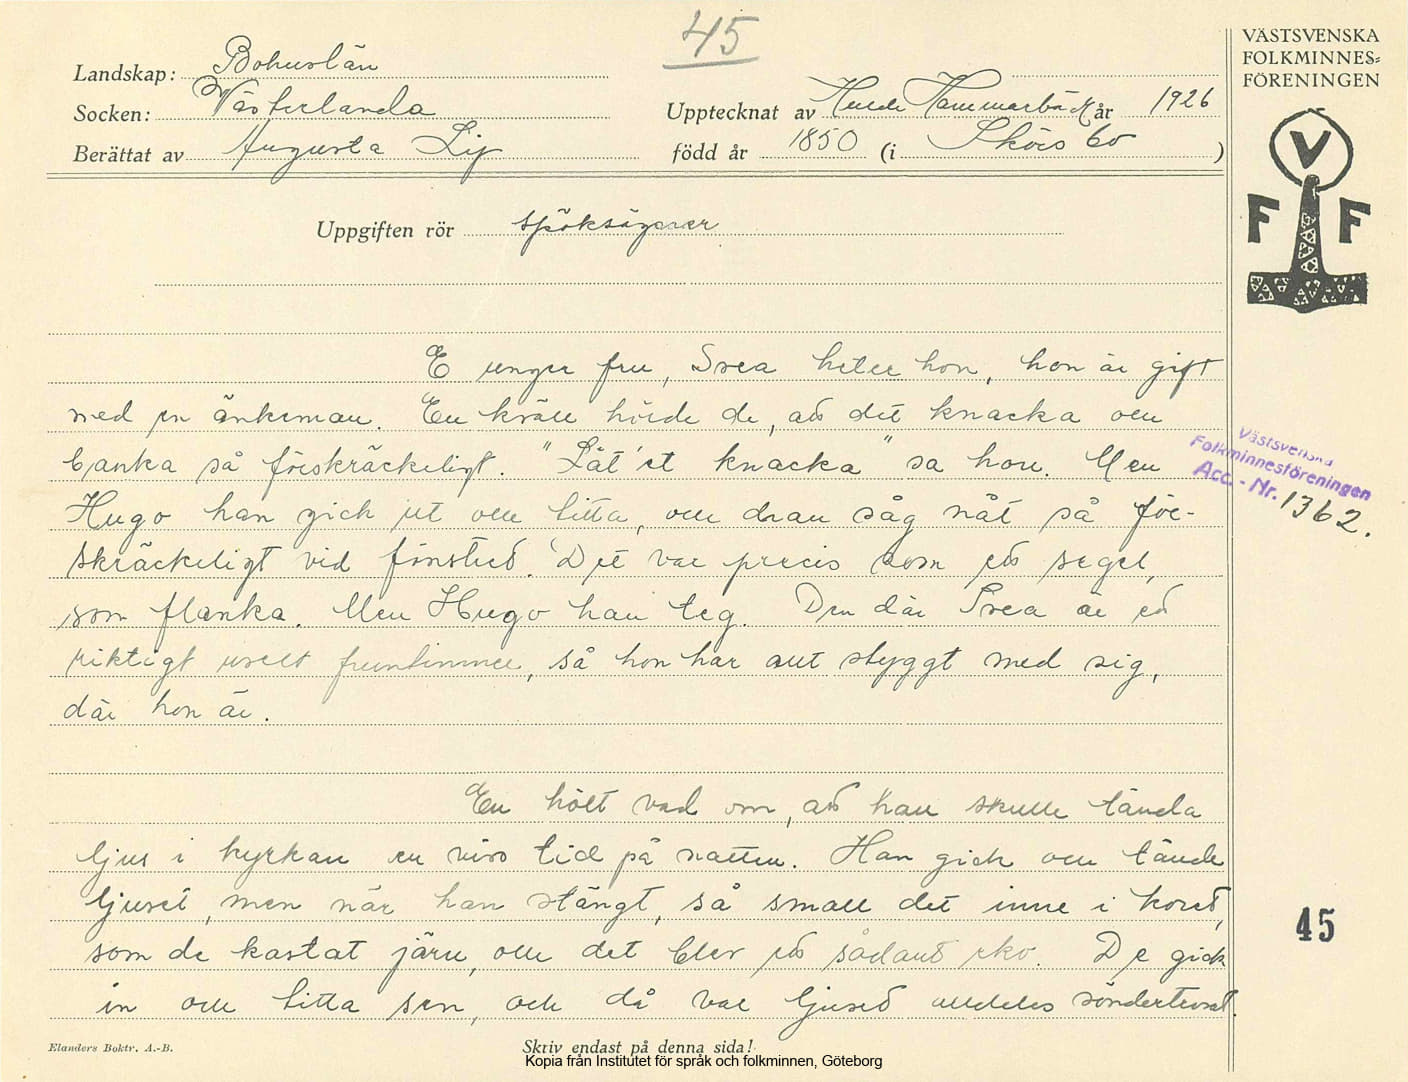 45
VÄSTSVENSKA
FOLKMINNES-
FÖRENINGEN
Landskap: Bohuslän
Socken: Västerlanda
Upptecknat av Hulda Hammarbäck år 1926
Berättat av Augusta Lij
född år 1850 (i Skörsbo)
V
F F
Uppgiften rör spöksägner
E unger fru, Svea heter hon, hon är gift
med en änkeman. En kväll hörde de, att det knacka och
banka så förskräckeligt. "Låt'et knacka" sa hon. Men
Hugo han gick ut och titta, och dran såg nåt så för-
skräckeligt vid fönstret. Det var precis som ett segel,
som flanka. Men Hugo han teg. Den där Svea är ett
riktigt uselt fruntimmer, så hon har allt styggt med sig,
där hon är.
Västsvenska
Folkminnesföreningen
Acc. - Nr. 1362.
En hölt vad om, att han skulle tända
ljus i kyrkan en viss tid på natten. Han gick och tände
ljuset, men när han stängt, så small det inne i koret,
som de kastat järn, och det blev ett sådant eko. De gick
in och titta sen, och då var ljuset alldeles söndertrasat.
45
Elanders Boktr. A.-B.
Skriv endast på denna sida!
Kopia från Institutet för språk och folkminnen, Göteborg